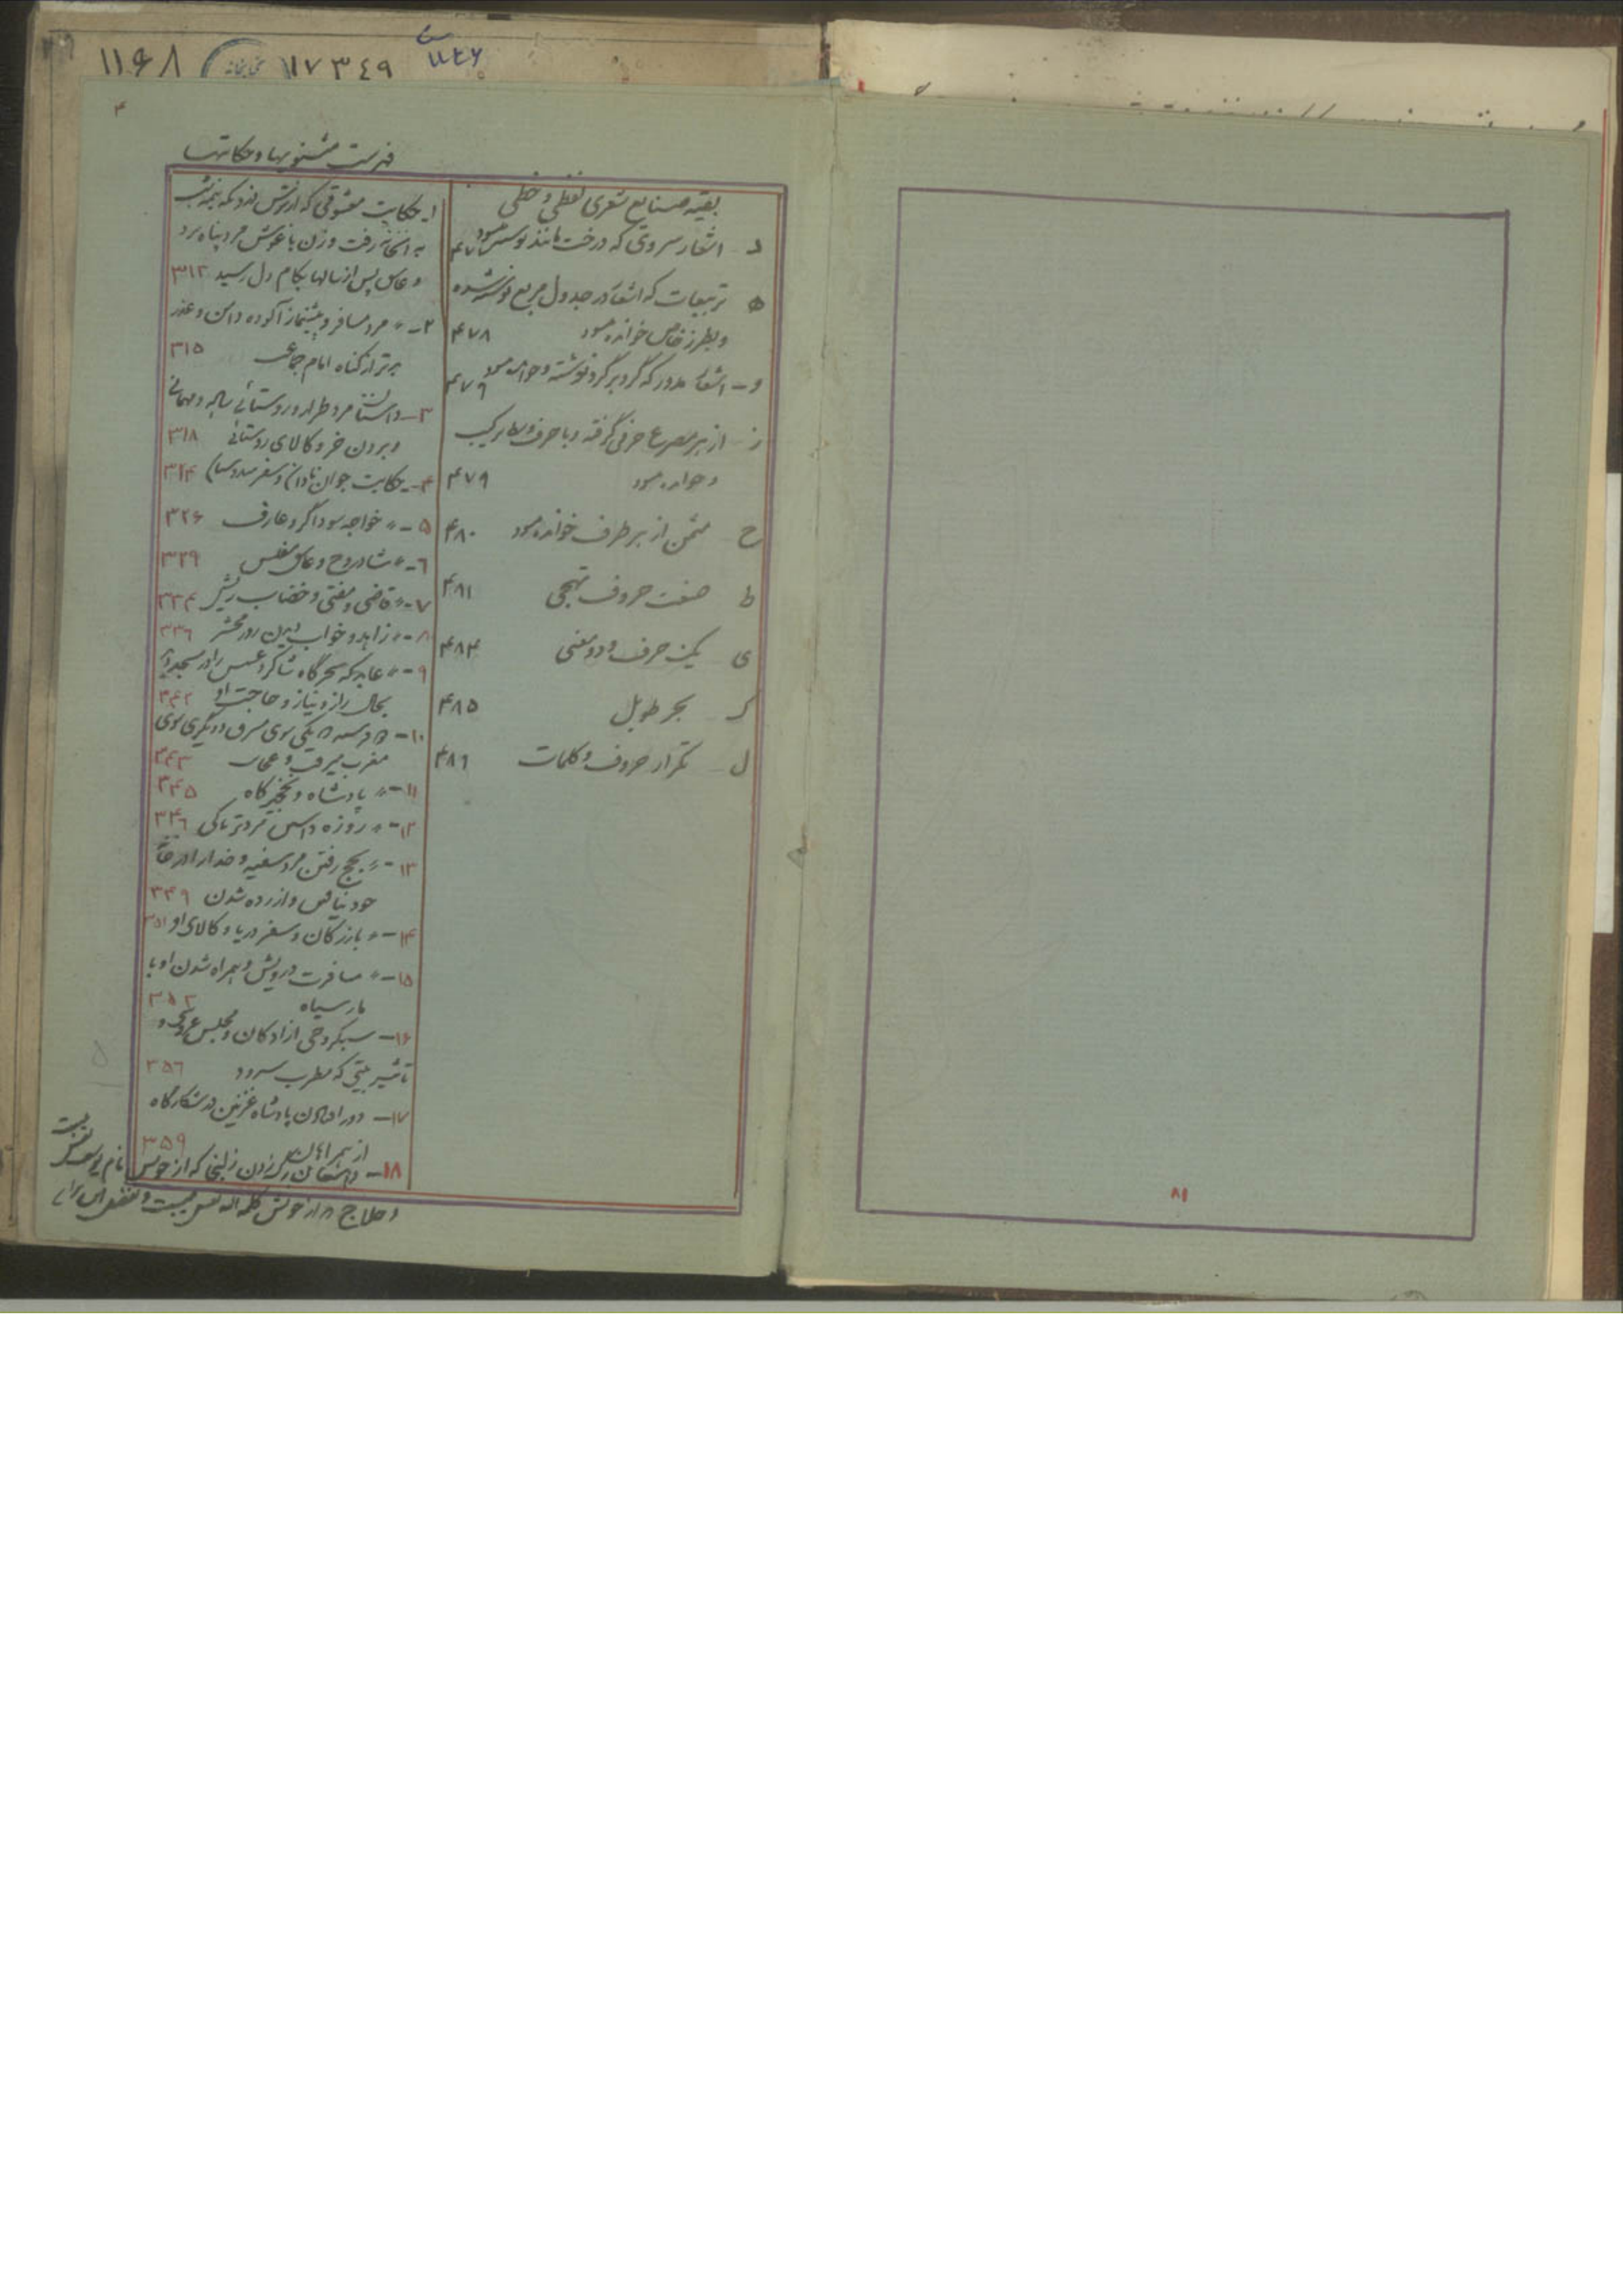 ۱۱۶۸ ۱۷۳۴۹
۴
فهرست مثنویها و حکایتها
بقیه صنایع شعری لفظی و خطی
د - اشعار سروی که درخت مانند
ه تربیعات که در جدول مربع نوشته شده
و بطرز خاص خوانده میشود ۴۷۸
و - اشعار مدور که گرد بر گرد نوشته و ۴۷۹
ز - از هر مصرع حرفی گرفته و با حرف ترکیب
و خوانده میشود ۴۷۹
ح مثمن از هر طرف خوانده میشود ۴۸۰
ط صنعت حروف تهجی ۴۸۱
ی یک حرف و دو معنی ۴۸۴
ک بحر طویل ۴۸۵
ل تکرار حروف و کلمات ۴۸۶
۱- حکایت معشوقی که نیمه شب
رفت و زن باغوش مرد پناه برد
و عاشق پس از سالها بکام دل رسید ۳۱۲
۲- " مرد مسافر و پیشنماز آلوده دامن و عذر
برتر از گناه امام جماعت ۳۱۵
۳- داستان مرد طرار و روستائی
و بردن خر و کالای روستائی ۳۱۸
۴- حکایت جوان نادان و سفر ۳۲۴
۵- " خواجه سوداگر و عارف ۳۲۶
۶- " شاهروح و عاشق مفلس ۳۲۹
۷- " قاضی و مفتی و خضاب ریش ۳۳۴
۸- " زاهد و خواب دیدن روز محشر ۳۳۶
۹- " عابدیکه سحرگاه شاگرد عسس را در مسجد دید
بحال راز و نیاز و حاجت او ۳۴۲
۱۰- " یکی سوی شرق و دیگری سوی
مغرب میرفت و ۳۴۳
۱۱- " پادشاه و نخجیرگاه ۳۴۵
۱۲- " روزه داشتن مرد تریاکی ۳۴۶
۱۳- " بحج رفتن مرد سفیه و خدا را در خانه
خود نیافتن و آزرده شدن ۳۴۹
۱۴- " بازرگان و سفر دریا و کالای او ۳۵۱
۱۵- " مسافرت درویش و همراه شدن او با
مار سیاه ۳۵۳
۱۶- سبکروحی از آزادگان و مجلس عروسی و
تأثیر بیتی که مطرب سرود ۳۵۶
۱۷- دور افتادن پادشاه غزنین در شکارگاه
از همراهان ۳۵۹
۱۸- داستان رگ زدن زلیخا که از خونش نام یوسف نقش بست
و حلاج از خونش کلمه الله نقش بست و
۸۱